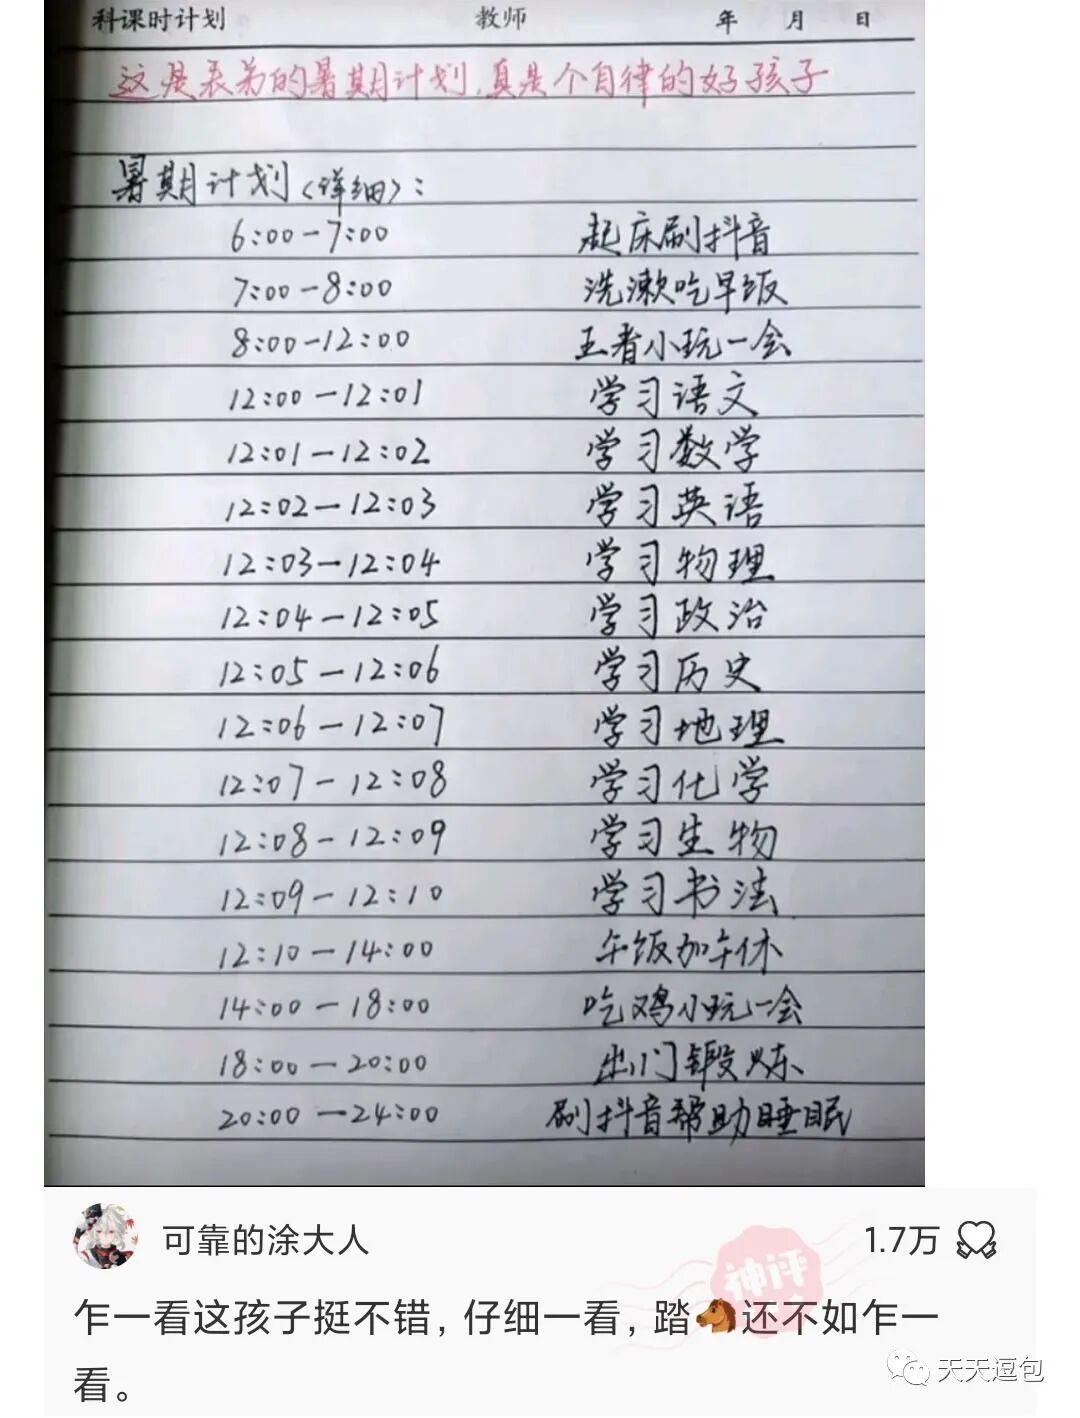 科课时计划 教师 年 月 日
这是表弟的暑期计划,真是个自律的好孩子
暑期计划(详细):
6:00-7:00 起床刷抖音
7:00-8:00 洗漱吃早饭
8:00-12:00 王者小玩一会
12:00-12:01 学习语文
12:01-12:02 学习数学
12:02-12:03 学习英语
12:03-12:04 学习物理
12:04-12:05 学习政治
12:05-12:06 学习历史
12:06-12:07 学习地理
12:07-12:08 学习化学
12:08-12:09 学习生物
12:09-12:10 学习书法
12:10-14:00 午饭加午休
14:00-18:00 吃鸡小玩一会
18:00-20:00 出门锻炼
20:00-24:00 刷抖音帮助睡眠
可靠的涂大人 1.7万
神评
乍一看这孩子挺不错,仔细一看,踏🐴还不如乍一
看。
天天逗包